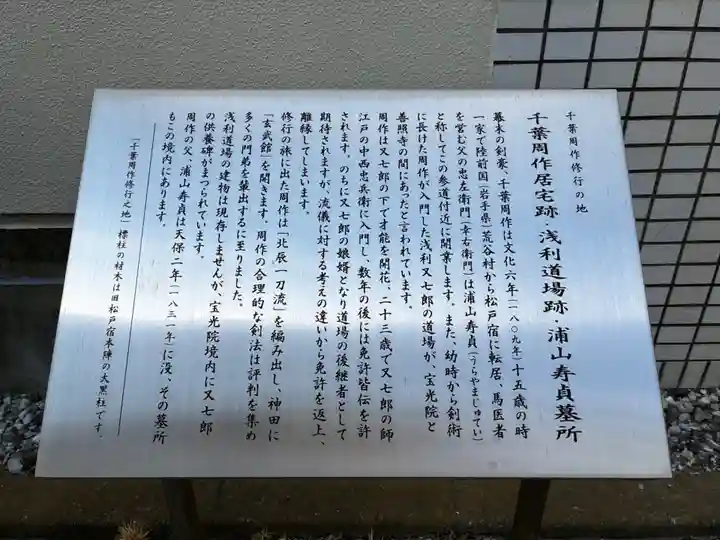 千葉周作修行の地
千葉周作居宅跡・浅利道場跡・浦山寿貞墓所
幕末の剣豪、千葉周作は文化六年（一八〇九年）十五歳の時
一家で陸前国（岩手県）荒谷村から松戸宿に転居、馬医者
を営む父の忠左衛門（幸右衛門）は浦山寿貞（うらやまじゅてい）
と称してこの参道付近に開業します。また、幼時から剣術
に長けた周作が入門した浅利又七郎の道場が、宝光院と
善照寺の間にあったと言われています。
周作は又七郎の下で才能を開花、二十三歳で又七郎の師
江戸の中西忠兵衛に入門し、数年の後には免許皆伝を許
されます。のちに又七郎の娘婿となり道場の後継者として
期待されますが、流儀に対する考えの違いから免許を返上、
離縁してしまいます。
修行の旅に出た周作は「北辰一刀流」を編み出し、神田に
「玄武館」を開きます。周作の合理的な剣法は評判を集め
多くの門弟を輩出するに至りました。
浅利道場の建物は現存しませんが、宝光院境内に又七郎
の供養碑がまつられています。
周作の父、浦山寿貞は天保二年（一八三一年）に没、その墓所
もこの境内にあります。
「千葉周作修行之地」標柱の材木は旧松戸宿本陣の大黒柱です。